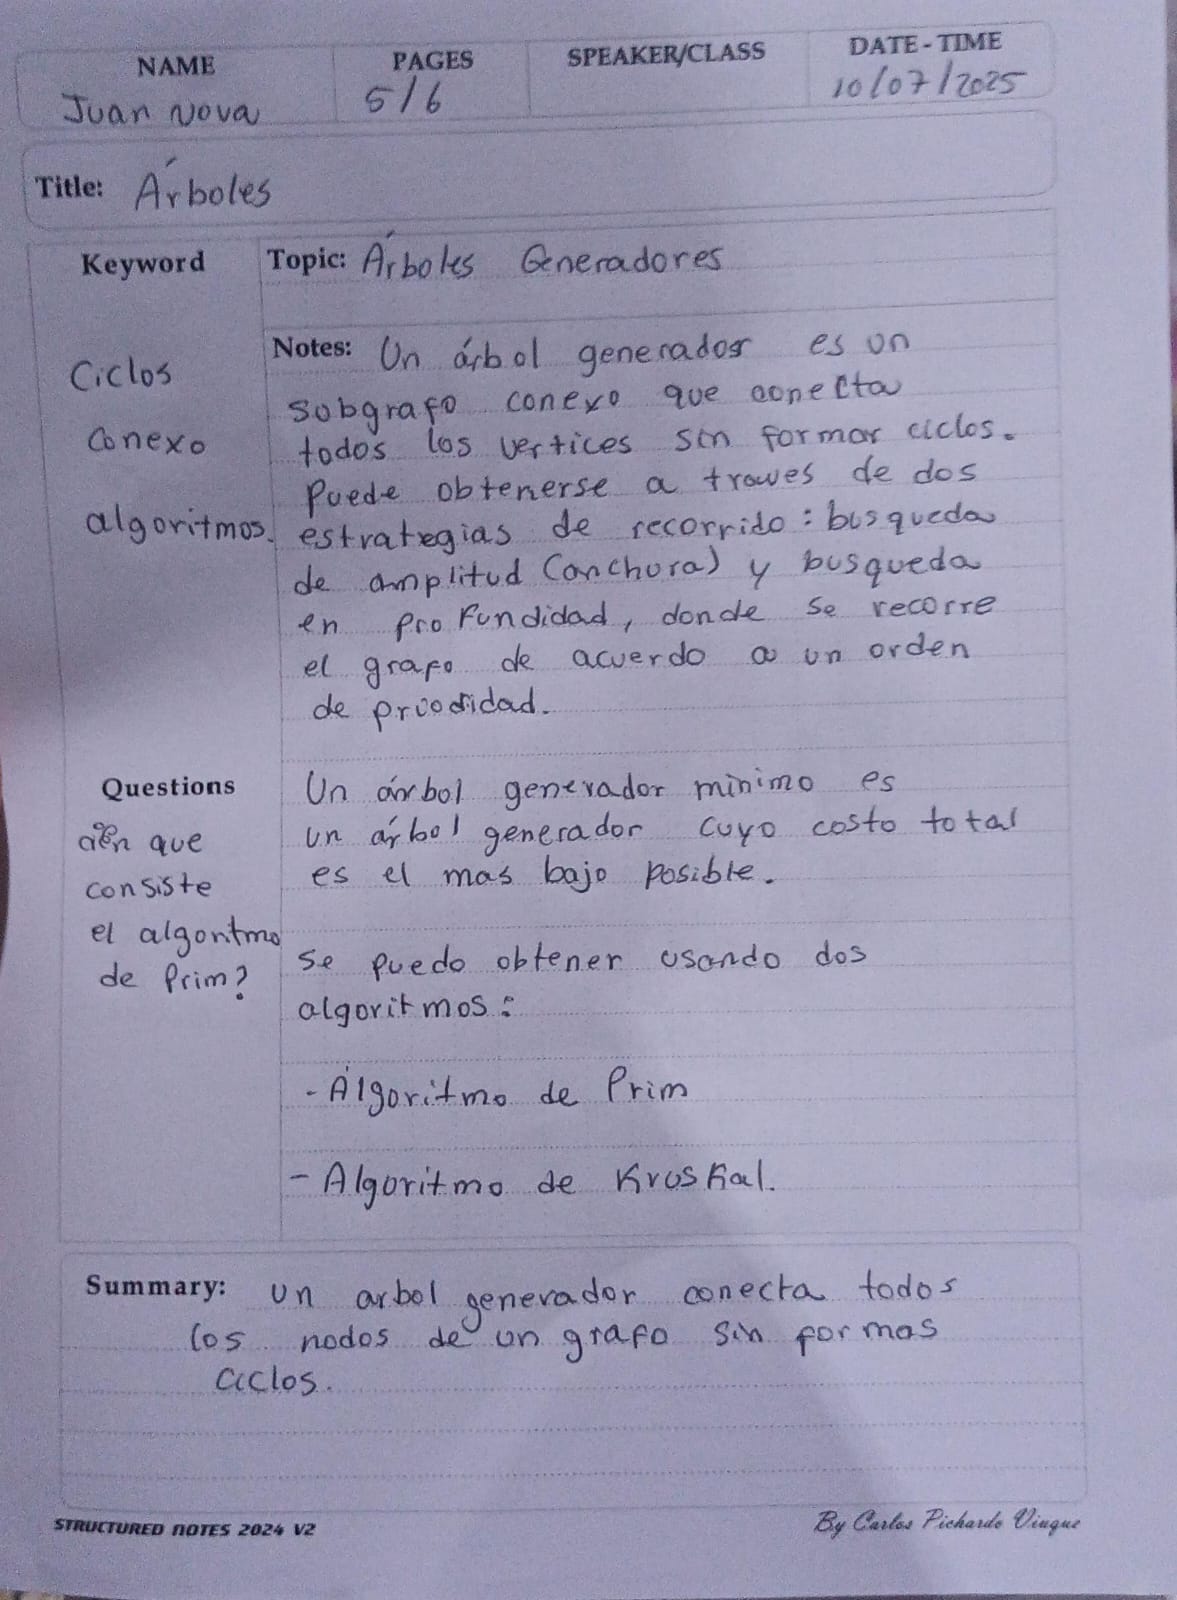 NAME PAGES SPEAKER/CLASS DATE-TIME
Juan Nova 5/6 10/07/2025
Title: Árboles
Keyword
Topic: Árboles Generadores
Ciclos
Conexo
algoritmos.
Notes: Un árbol generador es un
subgrafo conexo que conecta
todos los vertices sin formar ciclos.
Puede obtenerse a traves de dos
estrategias de recorrido: busqueda
de amplitud (anchura) y busqueda
en profundidad, donde se recorre
el grafo de acuerdo a un orden
de prioridad.
Questions
que
consiste
el algoritmo
de Prim?
Un árbol generador minimo es
un árbol generador cuyo costo total
es el mas bajo posible.
se puedo obtener usando dos
algoritmos:
- Algoritmo de Prim
- Algoritmo de Kruskal.
Summary: un arbol generador conecta todos
los nodos de un grafo sin formas
ciclos.
STRUCTURED NOTES 2024 V2
By Carlos Pichardo Viuque